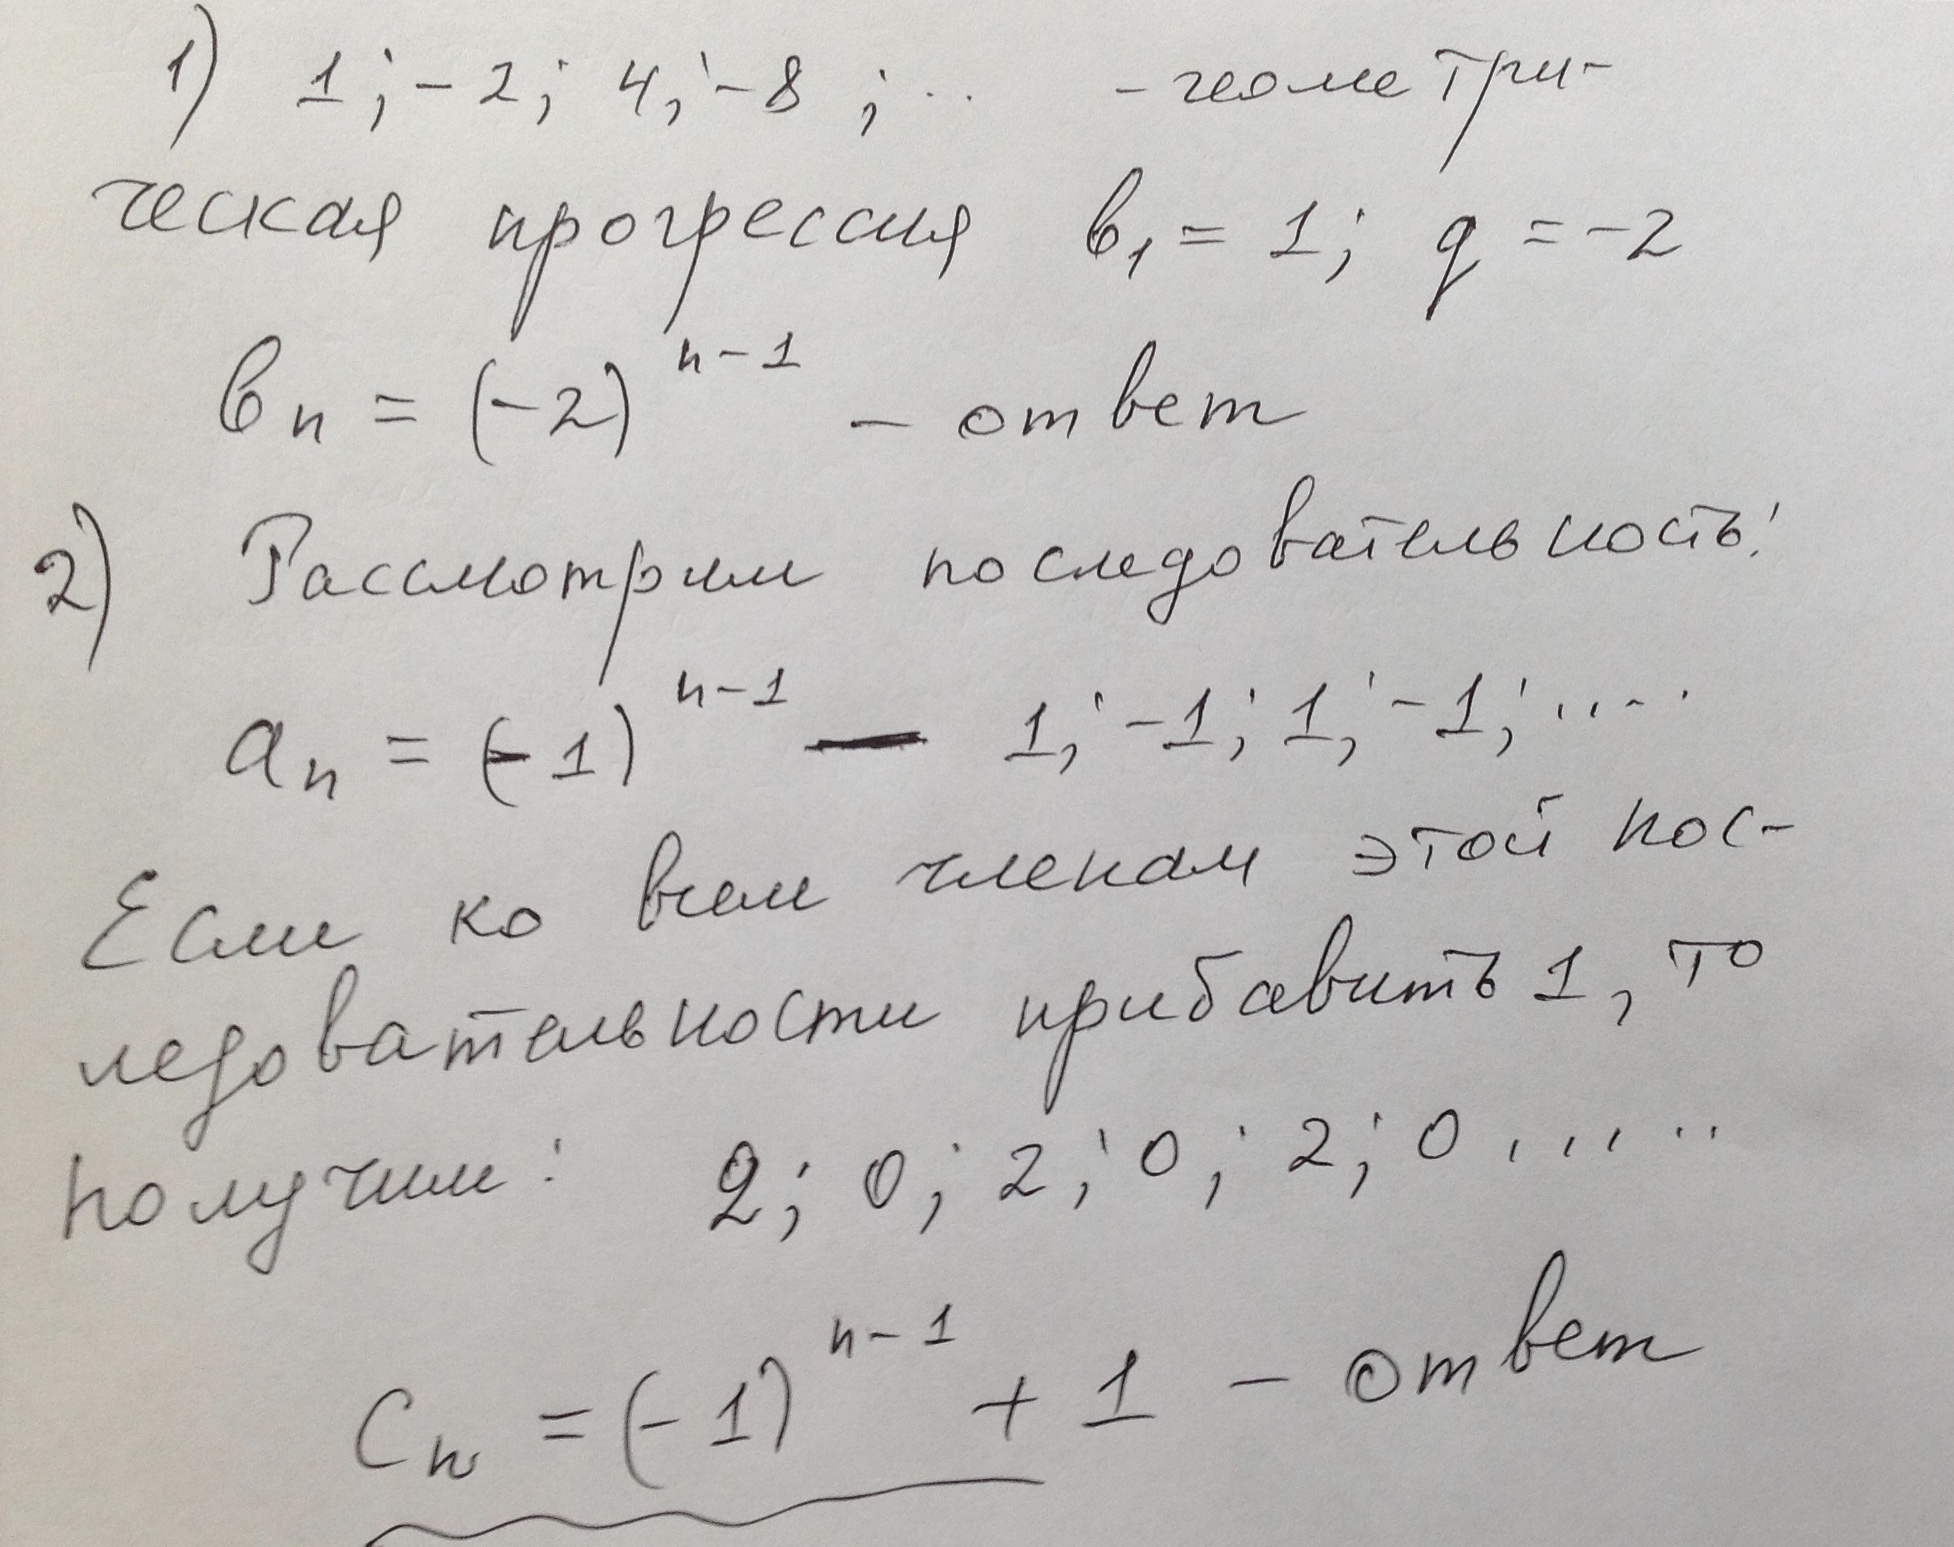 1) 1; -2; 4; -8; .. - геометри-
ческая прогрессия в₁ = 1; q = -2
вₙ = (-2)ⁿ⁻¹ - ответ
2) Рассмотрим последовательность:
aₙ = (-1)ⁿ⁻¹ — 1; -1; 1; -1; .....
Если ко всем членам этой пос-
ледовательности прибавить 1, то
получим: 2; 0; 2; 0; 2; 0 .....
Cₙ = (-1)ⁿ⁻¹ + 1 - ответ